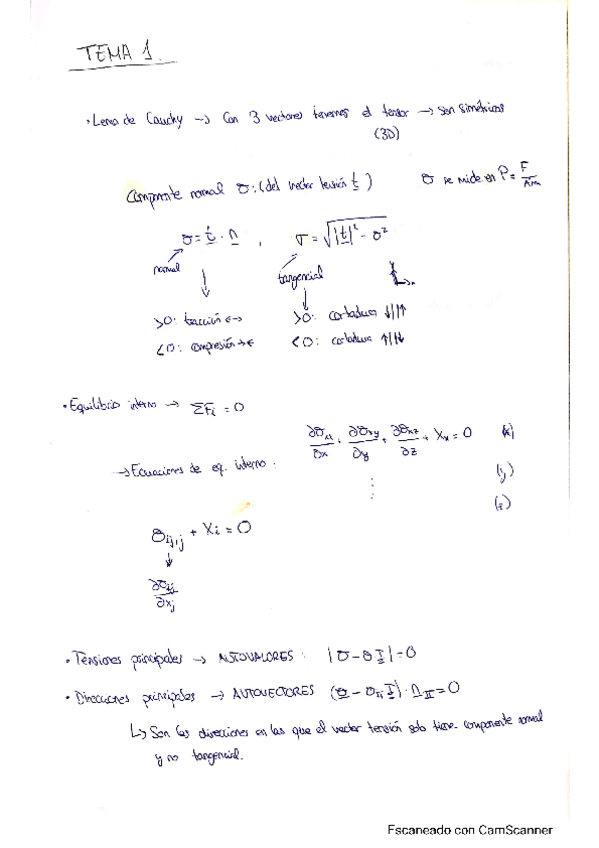 TEMA 1.
· Lema de Cauchy → Con 3 vectores tenemos el tensor → son simétricos
(3D)
Componente normal σ: (del vector tensión t) σ se mide en P = F/Área
σ = t · n , τ = √|t|² - σ²
normal tangencial
>0: tracción ←→ >0: cortadura ↓||↑
<0: compresión →← <0: cortadura ↑||↓
· Equilibrio interno → ΣFi = 0
∂σxx/∂x + ∂σxy/∂y + ∂σxz/∂z + Xx = 0 (x)
→ Ecuaciones de eq. interno : ⋮ (y)
(z)
σij,j + Xi = 0
↓
∂σij/∂xj
· Tensiones principales → AUTOVALORES : |σ - σI| = 0
· Direcciones principales → AUTOVECTORES (σ - σII I) · nII = 0
↳ Son las direcciones en las que el vector tensión solo tiene componente normal
y no tangencial.
Escaneado con CamScanner